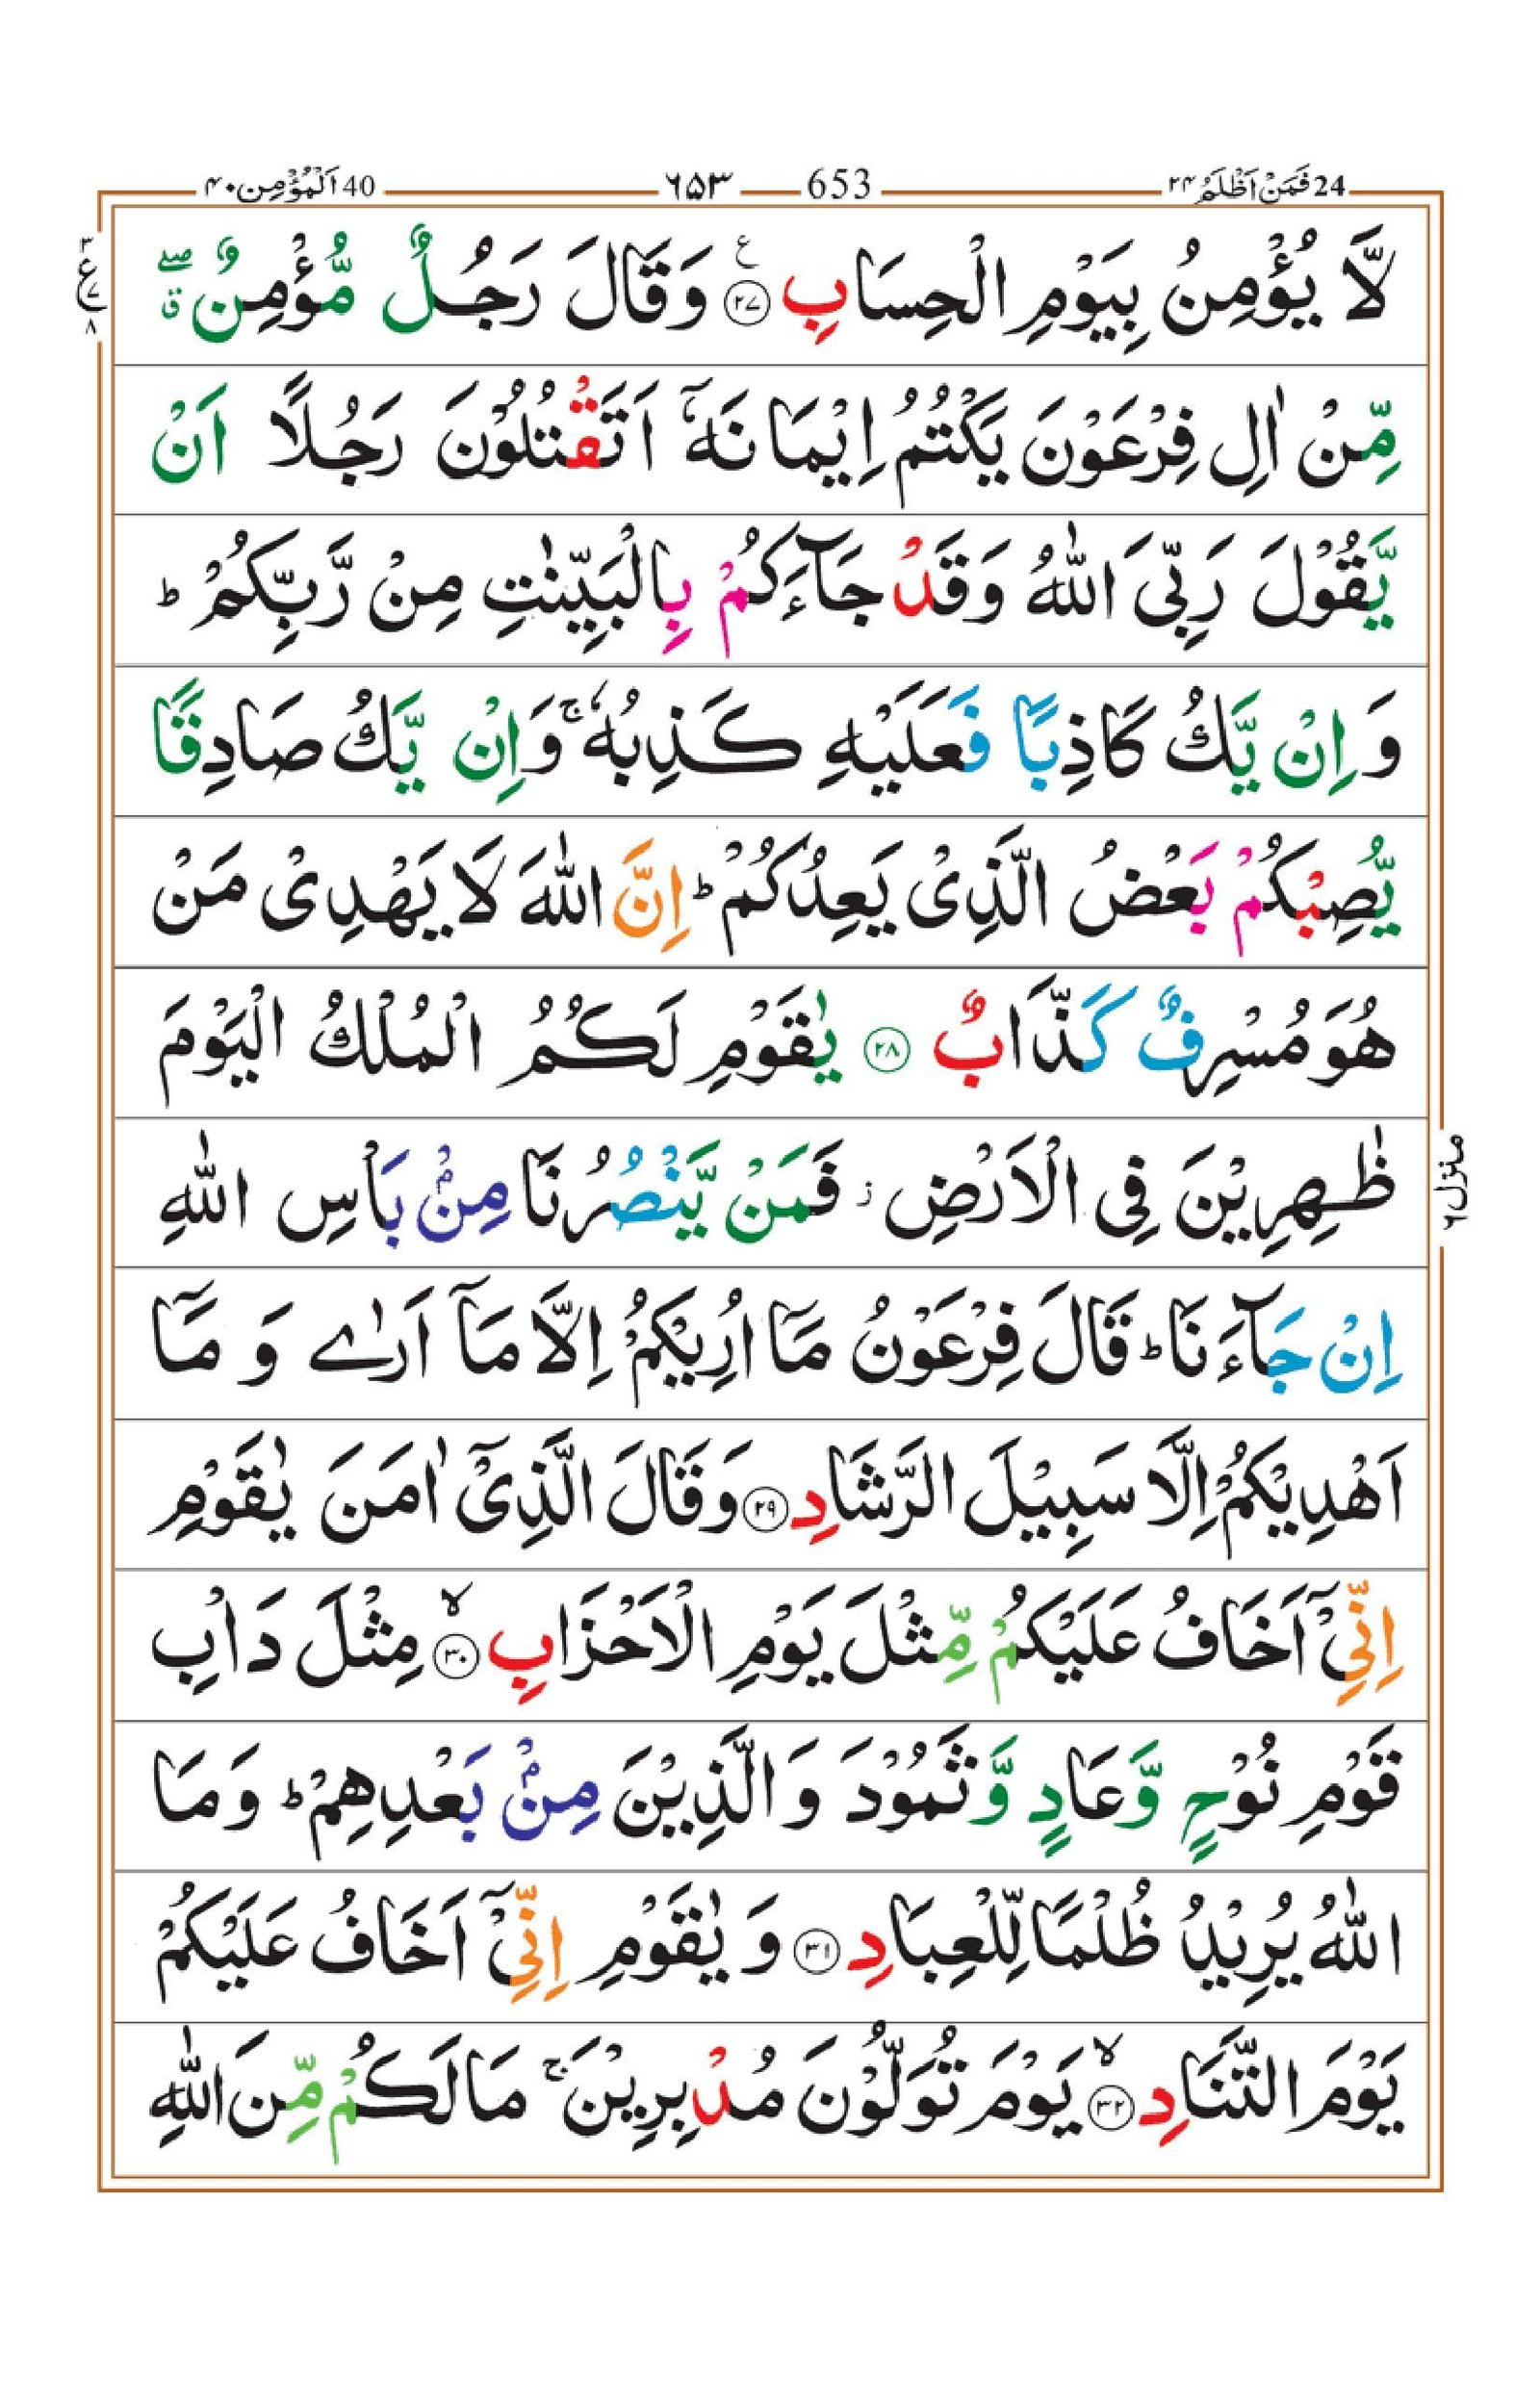 24 فَمَنْ اَظْلَمُ ۲۴
653 ۶۵۳
40 اَلْمُؤْمِن ۴۰
لَّا يُؤْمِنُ بِيَوْمِ الْحِسَابِ ۲۷ ع وَقَالَ رَجُلٌ مُّؤْمِنٌ ۖق
۳ ع ۷ ۸
مِّنْ اٰلِ فِرْعَوْنَ يَكْتُمُ اِيْمَانَهٗۤ اَتَقْتُلُوْنَ رَجُلًا اَنْ
يَّقُوْلَ رَبِّىَ اللّٰهُ وَقَدْ جَآءَكُمْ بِالْبَيِّنٰتِ مِنْ رَّبِّكُمْ ؕ
وَ اِنْ يَّكُ كَاذِبًا فَعَلَيْهِ كَذِبُهٗ ۚ وَاِنْ يَّكُ صَادِقًا
يُّصِبْكُمْ بَعْضُ الَّذِىْ يَعِدُكُمْ ؕ اِنَّ اللّٰهَ لَا يَهْدِىْ مَنْ
هُوَ مُسْرِفٌ كَذَّابٌ ۲۸ يٰقَوْمِ لَكُمُ الْمُلْكُ الْيَوْمَ
ظٰهِرِيْنَ فِى الْاَرْضِ ز فَمَنْ يَّنْصُرُنَا مِنْۢ بَاْسِ اللّٰهِ
اِنْ جَآءَنَا ؕ قَالَ فِرْعَوْنُ مَاۤ اُرِيْكُمْ اِلَّا مَاۤ اَرٰى وَ مَاۤ
اَهْدِيْكُمْ اِلَّا سَبِيْلَ الرَّشَادِ ۲۹ وَقَالَ الَّذِىْۤ اٰمَنَ يٰقَوْمِ
اِنِّىْۤ اَخَافُ عَلَيْكُمْ مِّثْلَ يَوْمِ الْاَحْزَابِ ۳۰ ۙ مِثْلَ دَاْبِ
قَوْمِ نُوْحٍ وَّعَادٍ وَّثَمُوْدَ وَ الَّذِيْنَ مِنْۢ بَعْدِهِمْ ؕ وَمَا
اللّٰهُ يُرِيْدُ ظُلْمًا لِّلْعِبَادِ ۳۱ وَ يٰقَوْمِ اِنِّىْۤ اَخَافُ عَلَيْكُمْ
يَوْمَ التَّنَادِ ۳۲ ۙ يَوْمَ تُوَلُّوْنَ مُدْبِرِيْنَ ۚ مَا لَكُمْ مِّنَ اللّٰهِ
منزل ۶